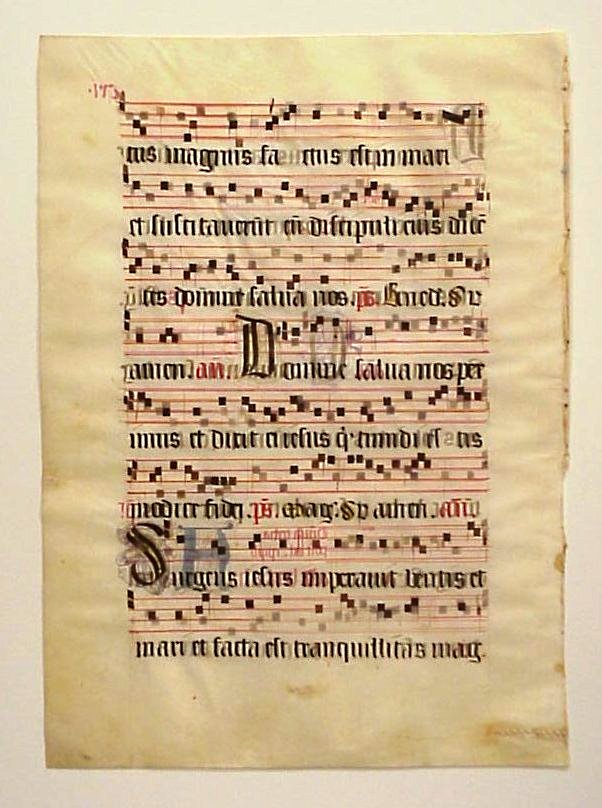 tus magnus factus est in mari
et suscitauerūt eū discipuli eius dicē
tes domine salua nos. ps. Bened. Ev
amen. añ. Domine salua nos peri
imus et dicit ei iesus q timidi estis
modice fidei. ps. Mag. Ev a ueri. añ
Surgens iesus imperauit uentis et
mari et facta est tranquillitas mag.